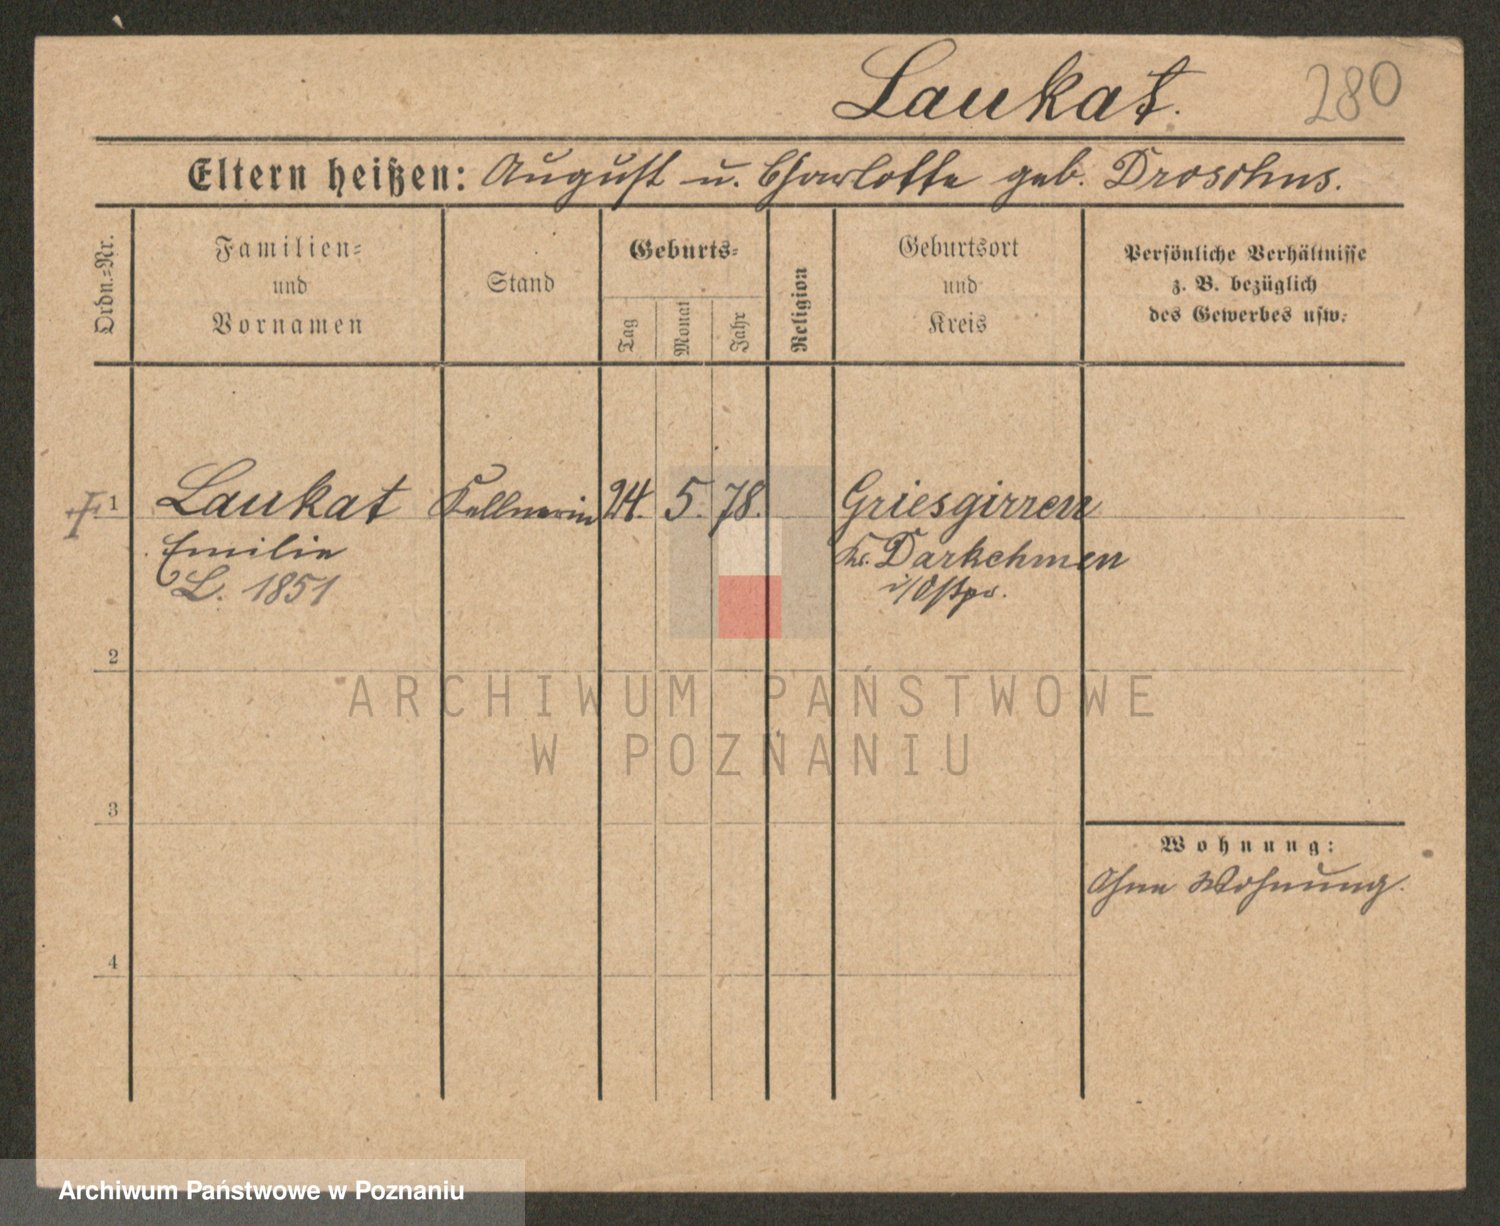 Laukat. 280
Eltern heißen: August u. Charlotte geb. Droschus.
Ordn.=Nr.
Familien=
und
Vornamen
Stand
Geburts=
Tag
Monat
Jahr
Religion
Geburtsort
und
Kreis
Persönliche Verhältnisse
z. B. bezüglich
des Gewerbes usw.
1 Laukat Kellnerin 24. 5. 78. Griesgirren
Emilie Kr. Darkehmen
L. 1851 i/Ostpr.
2
ARCHIWUM PAŃSTWOWE
W POZNANIU
3
Wohnung:
Ohne Wohnung.
4
Archiwum Państwowe w Poznaniu